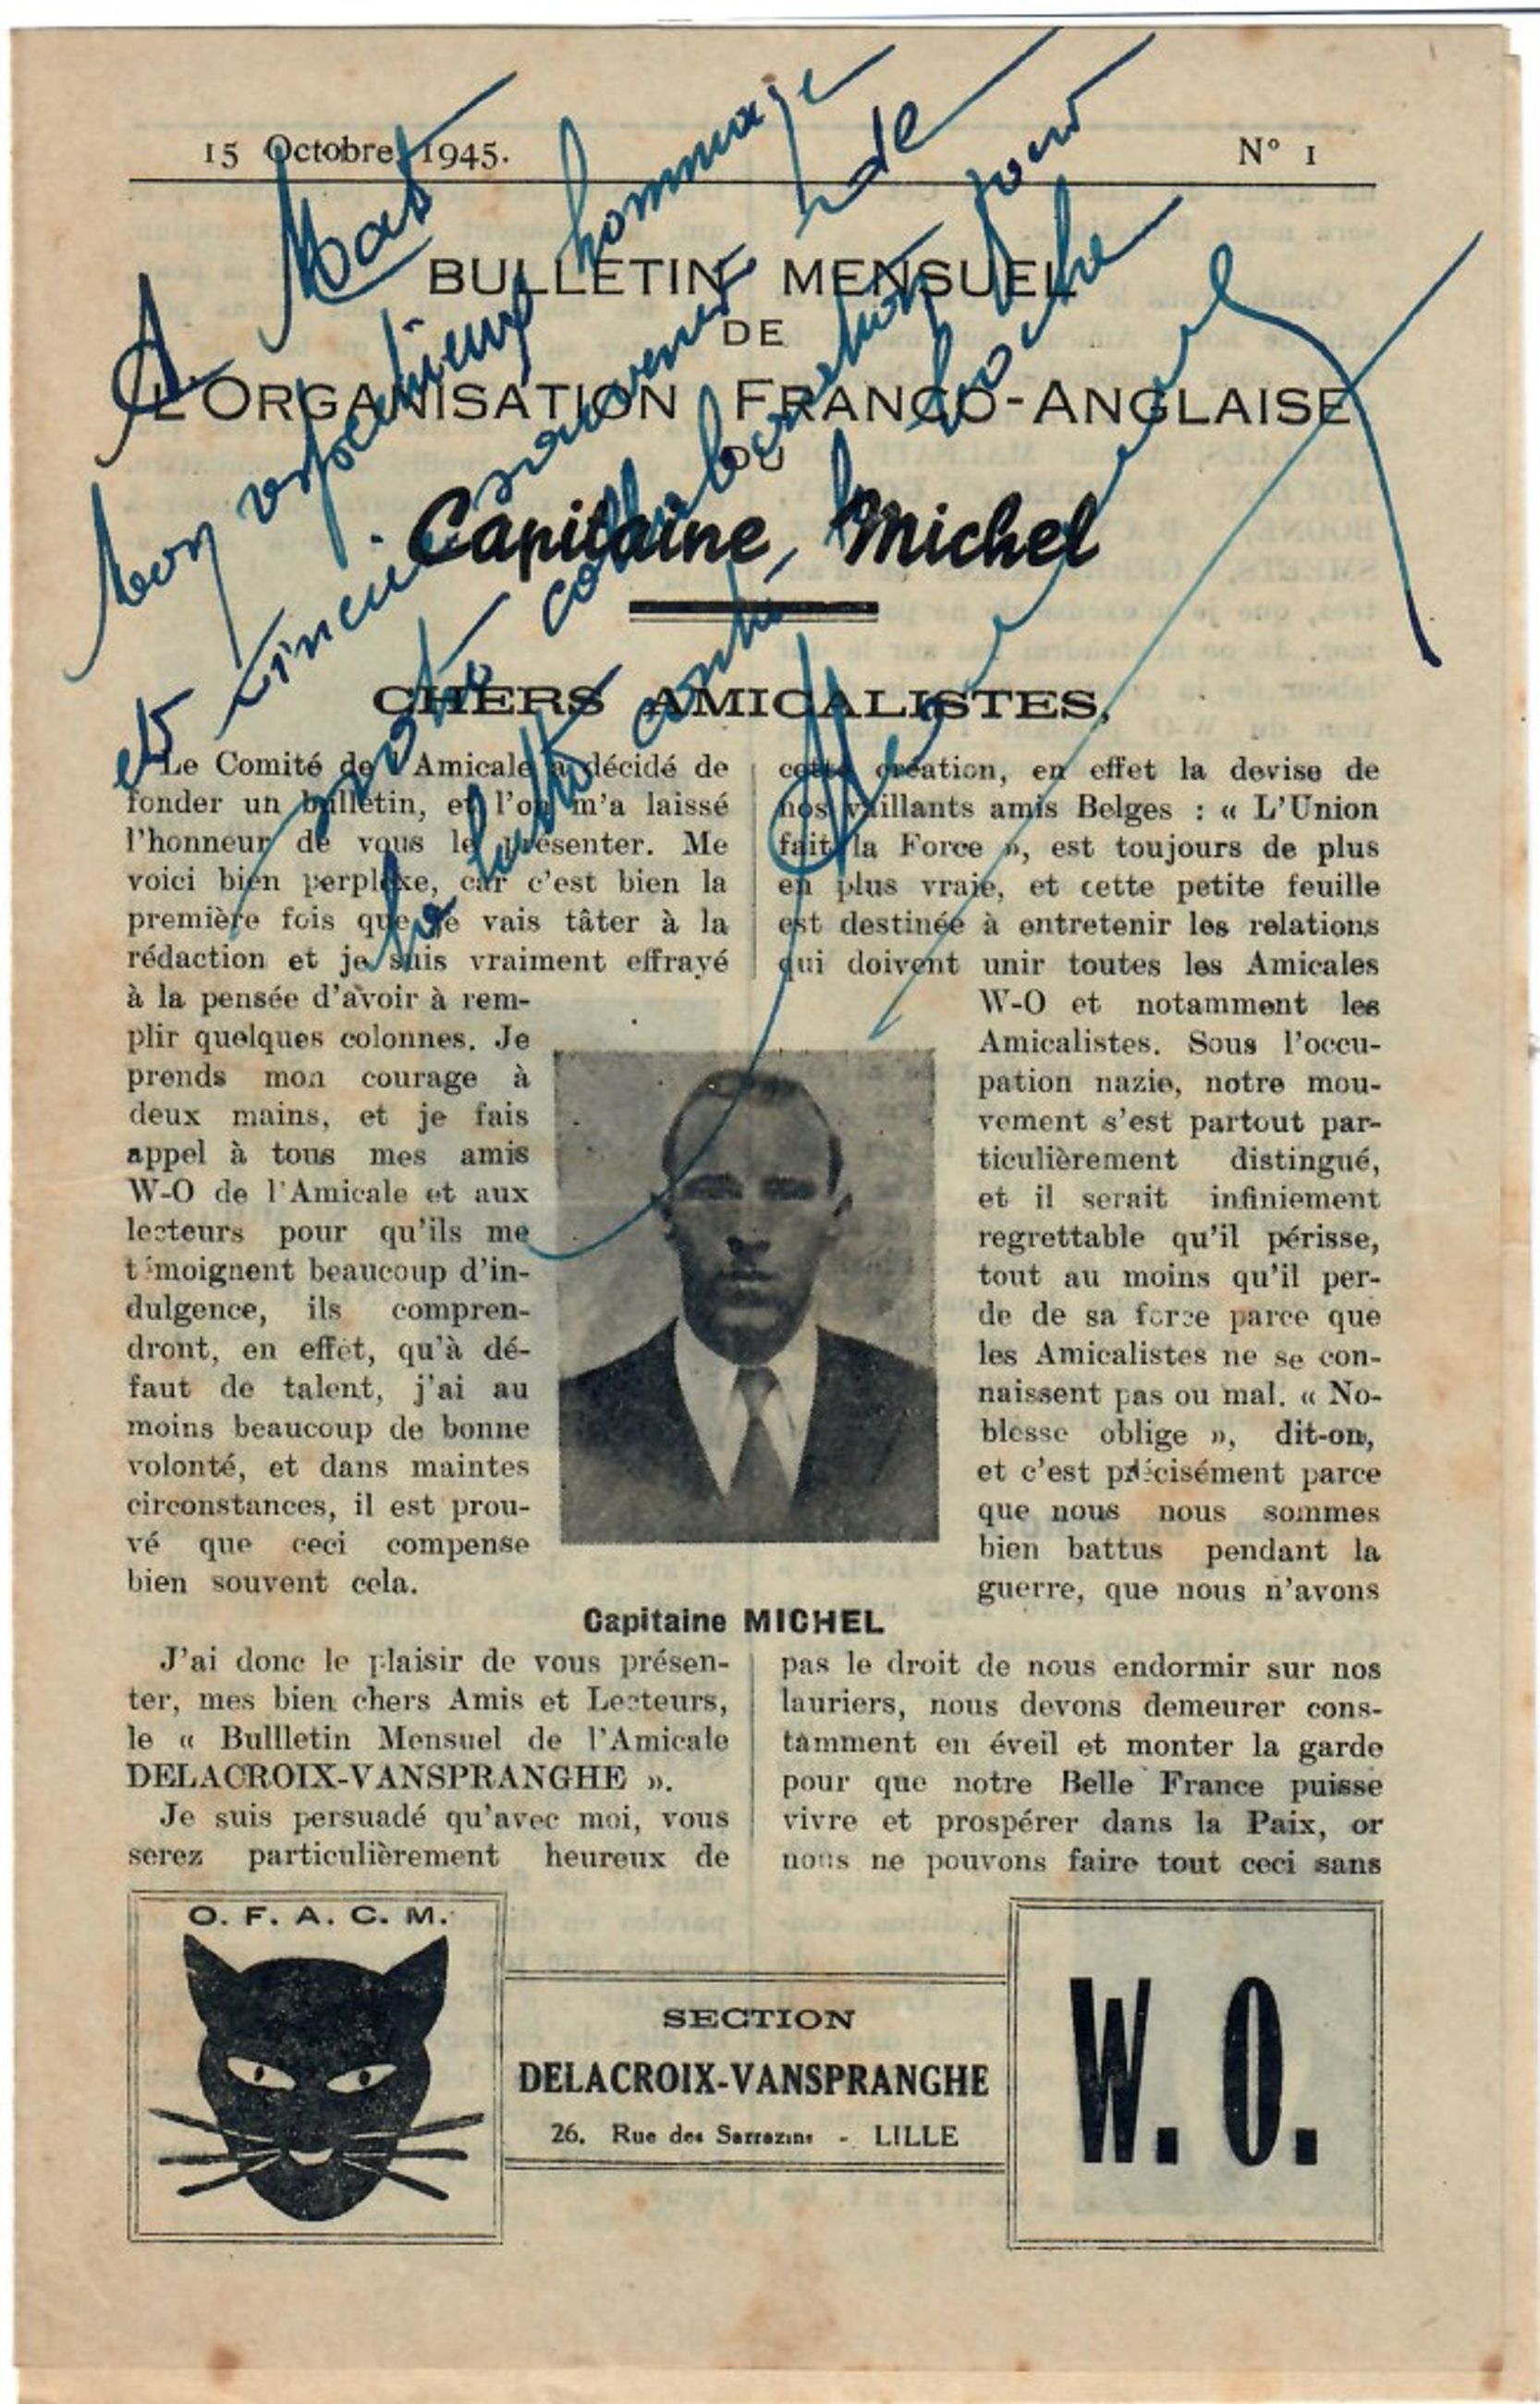 15 Octobre 1945.
N° 1
BULLETIN MENSUEL
DE
L'ORGANISATION FRANCO-ANGLAISE
DU
Capitaine Michel
A Mast
mon respectueux hommage
et sincu souvenir de
votre collaboration pour
la lutte contre le boche
CHERS AMICALISTES,
Le Comité de l'Amicale a décidé de
fonder un bulletin, et l'on m'a laissé
l'honneur de vous le présenter. Me
voici bien perplexe, car c'est bien la
première fois que je vais tâter à la
rédaction et je suis vraiment effrayé
à la pensée d'avoir à rem-
plir quelques colonnes. Je
prends mon courage à
deux mains, et je fais
appel à tous mes amis
W-O de l'Amicale et aux
lecteurs pour qu'ils me
témoignent beaucoup d'in-
dulgence, ils compren-
dront, en effet, qu'à dé-
faut de talent, j'ai au
moins beaucoup de bonne
volonté, et dans maintes
circonstances, il est prou-
vé que ceci compense
bien souvent cela.
J'ai donc le plaisir de vous présen-
ter, mes bien chers Amis et Lecteurs,
le « Bullletin Mensuel de l'Amicale
DELACROIX-VANSPRANGHE ».
Je suis persuadé qu'avec moi, vous
serez particulièrement heureux de
cette création, en effet la devise de
nos vaillants amis Belges : « L'Union
fait la Force », est toujours de plus
en plus vraie, et cette petite feuille
est destinée à entretenir les relations
qui doivent unir toutes les Amicales
W-O et notamment les
Amicalistes. Sous l'occu-
pation nazie, notre mou-
vement s'est partout par-
ticulièrement distingué,
et il serait infiniement
regrettable qu'il périsse,
tout au moins qu'il per-
de de sa force parce que
les Amicalistes ne se con-
naissent pas ou mal. « No-
blesse oblige », dit-on,
et c'est précisément parce
que nous nous sommes
bien battus pendant la
guerre, que nous n'avons
pas le droit de nous endormir sur nos
lauriers, nous devons demeurer cons-
tamment en éveil et monter la garde
pour que notre Belle France puisse
vivre et prospérer dans la Paix, or
nous ne pouvons faire tout ceci sans
Capitaine MICHEL
O. F. A. C. M.
SECTION
DELACROIX-VANSPRANGHE
26, Rue des Sarrazins - LILLE
W. O.